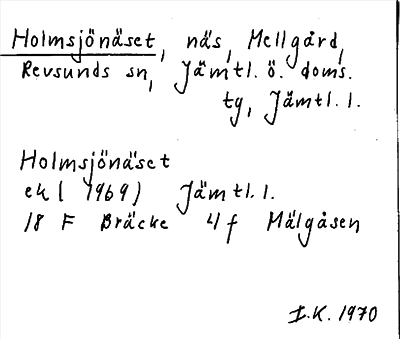 Holmsjönäset, näs, Mellgård,
Revsunds sn, Jämtl. ö. doms.
tg, Jämtl. l.
Holmsjönäset
ek (1969) Jämtl. l.
18 F Bräcke 4f Mälgåsen
I.K. 1970